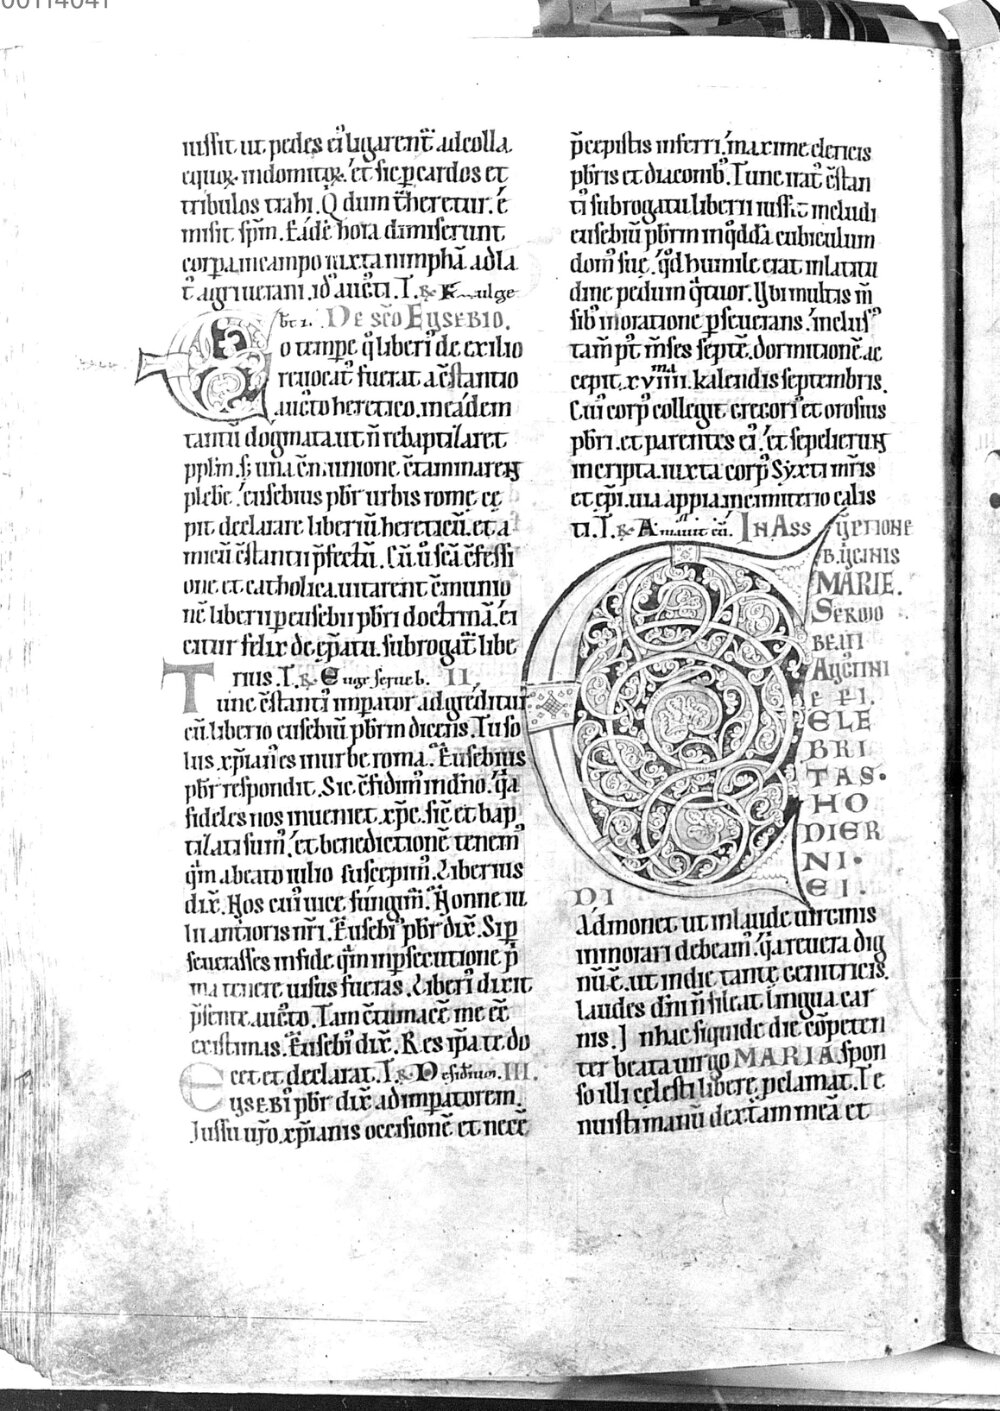 00114041
iussit ut pedes ei᾽ ligarent᷑ ad colla
equoꝝ indomitoꝝ. et sic ꝑ cardos et
tribulos trahi. Q̇ dum t̄heretur. é
misit sp̄m. Eadē hora dimiserunt
corpꝰ a in campo iuxta nimphā ad la
t᷑ agri uerani. idꝰ auḡti.
bͭ 1. De sc̄o Eusebio.
o tempe q̇ liberiꝰ de exilio
reuocatꝰ fuerat a c̄stantio
auḡto heretico. in eádem
tantū dogmata ut n̄ rebaptizaret
pplm̄. s; una cō munione c̄taminaret
plebē. eusebius pbr̄ urbis rome ce
pit declarare liberiū hereticū. et a
micū c̄stantii p̄fectū. Cū u̇ sc̄a c̄fessi
one et catholica uitarent c̄munio
nē liberii ꝑ eusebii pbr̄i doctrinā. éi
citur felix de ep̄atu. subrogat᷑ libe
rius. II.
Tunc c̄stantiꝰ impator adgreditur
cū liberio eusebiū pbr̄m dicens. Tu so
lus xp̄ianꝰ es in urbe roma. Eusebius
pbr̄ respondit. Sic c̄fidimꝰ in dn̄o. q̇a
fideles nos inueniet xp̄c. sic̄ et bap
tizati sumꝰ. et benedictionē tenemꝰ
q̇m a beato iulio suscepimꝰ. Liberius
dix̄. Nos cuiꝰ uice fúngimꝰ. Nonne iu
lii antioris nr̄i. Eusebiꝰ pbr̄ dix̄. Si ꝑ
seuerasses in fide q̇m in ꝑsecutione p̄
ma tenere uisus fueras. Liberiꝰ dixit
p̄sente auḡto. Tam c̄tumacē me eē
existimas. Eusebiꝰ dix̄. Res ip̄a te do
cet et declarat. III.
Eusebiꝰ pbr̄ dix̄ ad imperatorem.
Iussu ur̄o. xp̄ianis occisionē et necē
p̄cepistis inferri. maxime clericis
pbr̄is et diaconibꝰ. Tunc iratꝰ c̄stan
tiꝰ subrogatu liberii iussit includi
eusebiū pbr̄m in q̇ddā cubiculum
domꝰ sue. q̇d humile erat in latitu
dine pedum q̇tuor. Vbi multis m̄
sibꝰ in oratione ꝑseuerans. inclusꝰ
tam̄ pꝰt m̄ses septē. dormitionē ac
cepit. xviiii. kalendis septembris.
Cuiꝰ corpꝰ collegit gregoriꝰ et orosius
pbr̄i. et parentes eiꝰ. et sepelierunt
in cripta. iuxta corpꝰ Syxti mr̄is
et ep̄i. uia appia. in cimiterio calis
ti. In Assumptione
B. Uginis
MARIE.
Sermo
beati
Augustini
E P I.
CELE
BRI
TAS·
HO
DIER
NI·
EI·
DI
Admonet ut in laude uirginis
inmorari debeamꝰ. q̇a reuera dig
nū ē. ut in die tantę genitricis.
laudes dn̄i n̄ sileat lingua car
nis. In hac siquidē die cōpeten
ter beata uirgo MARIA spon
so illi cęlesti libere ꝓclamat. Te
nuisti manū dextram meā et